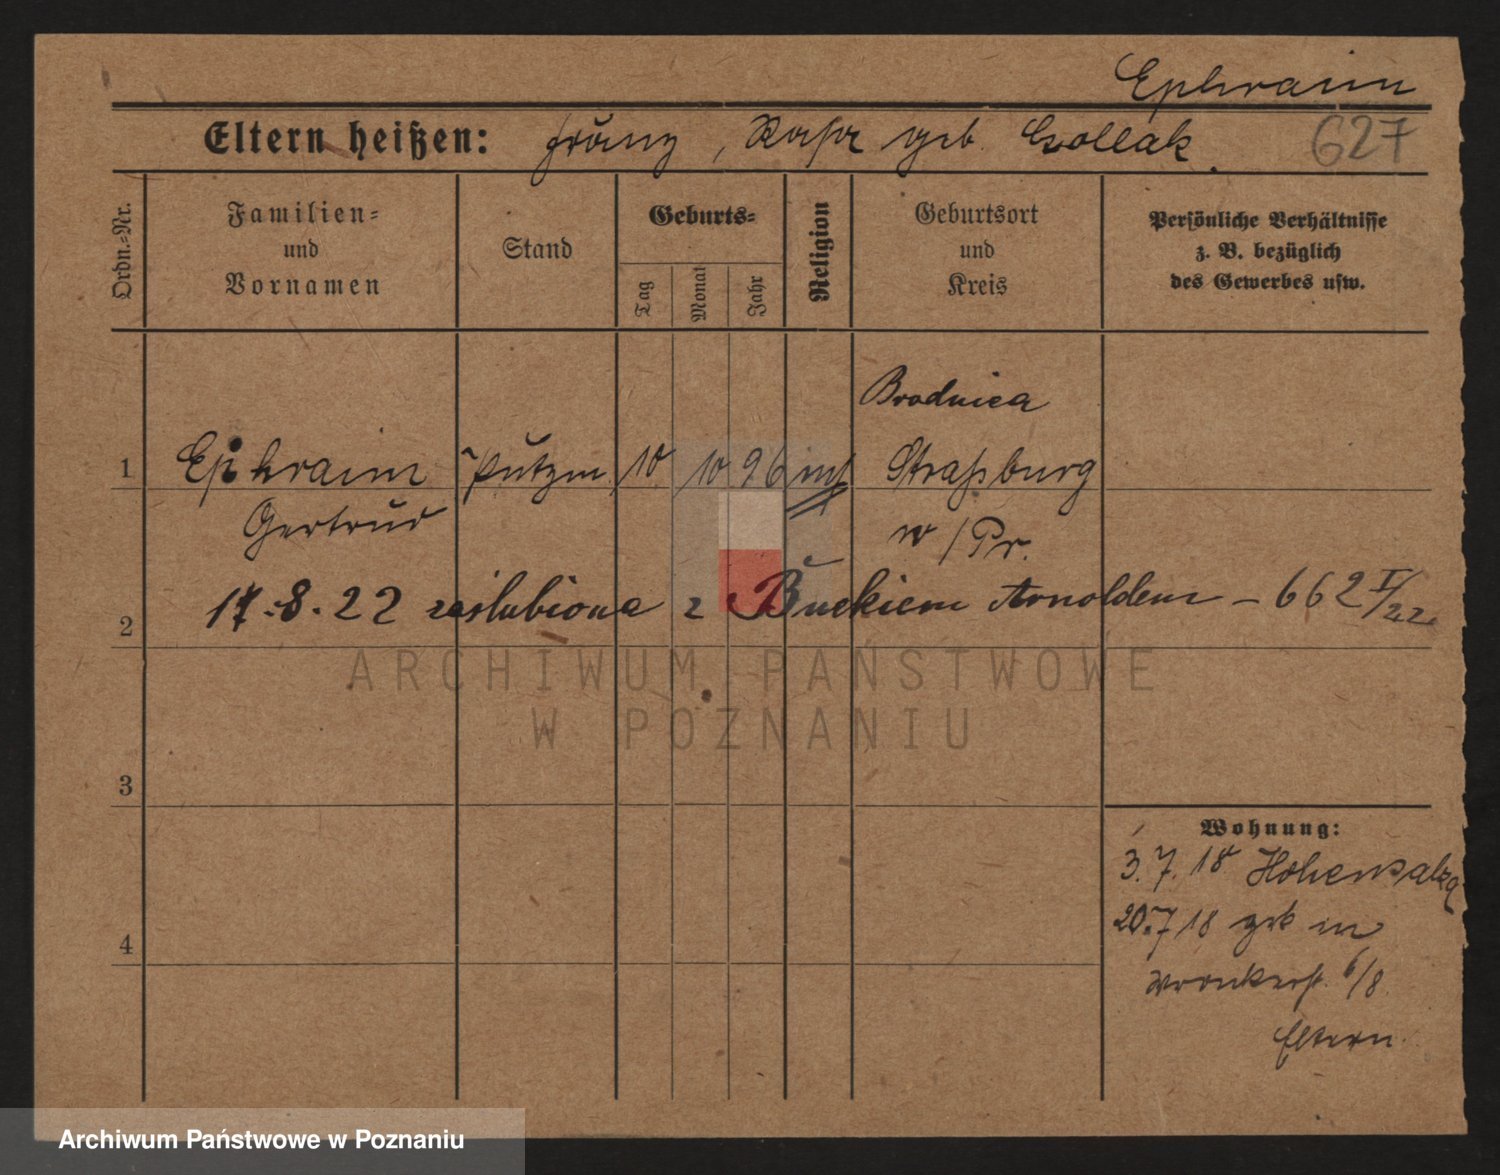 Ephraim
Eltern heißen: Franz, Rosa geb. Gollak. 627
Ordn.-Nr. Familien- und Vornamen Stand Geburts- Tag Monat Jahr Religion Geburtsort und Kreis Persönliche Verhältnisse z. B. bezüglich des Gewerbes usw.
Brodnica
1 Ephraim Putzm. 10 10 96 Straßburg
Gertrud w/Pr.
2 17.8.22 zaślubiona z Buckiem Arnoldem – 662 I/22
ARCHIWUM PAŃSTWOWE
W POZNANIU
3
Wohnung:
3.7.18 Hohensalza
20.7.18 zrk in
4
Wronkerst. 6/8
Eltern
Archiwum Państwowe w Poznaniu